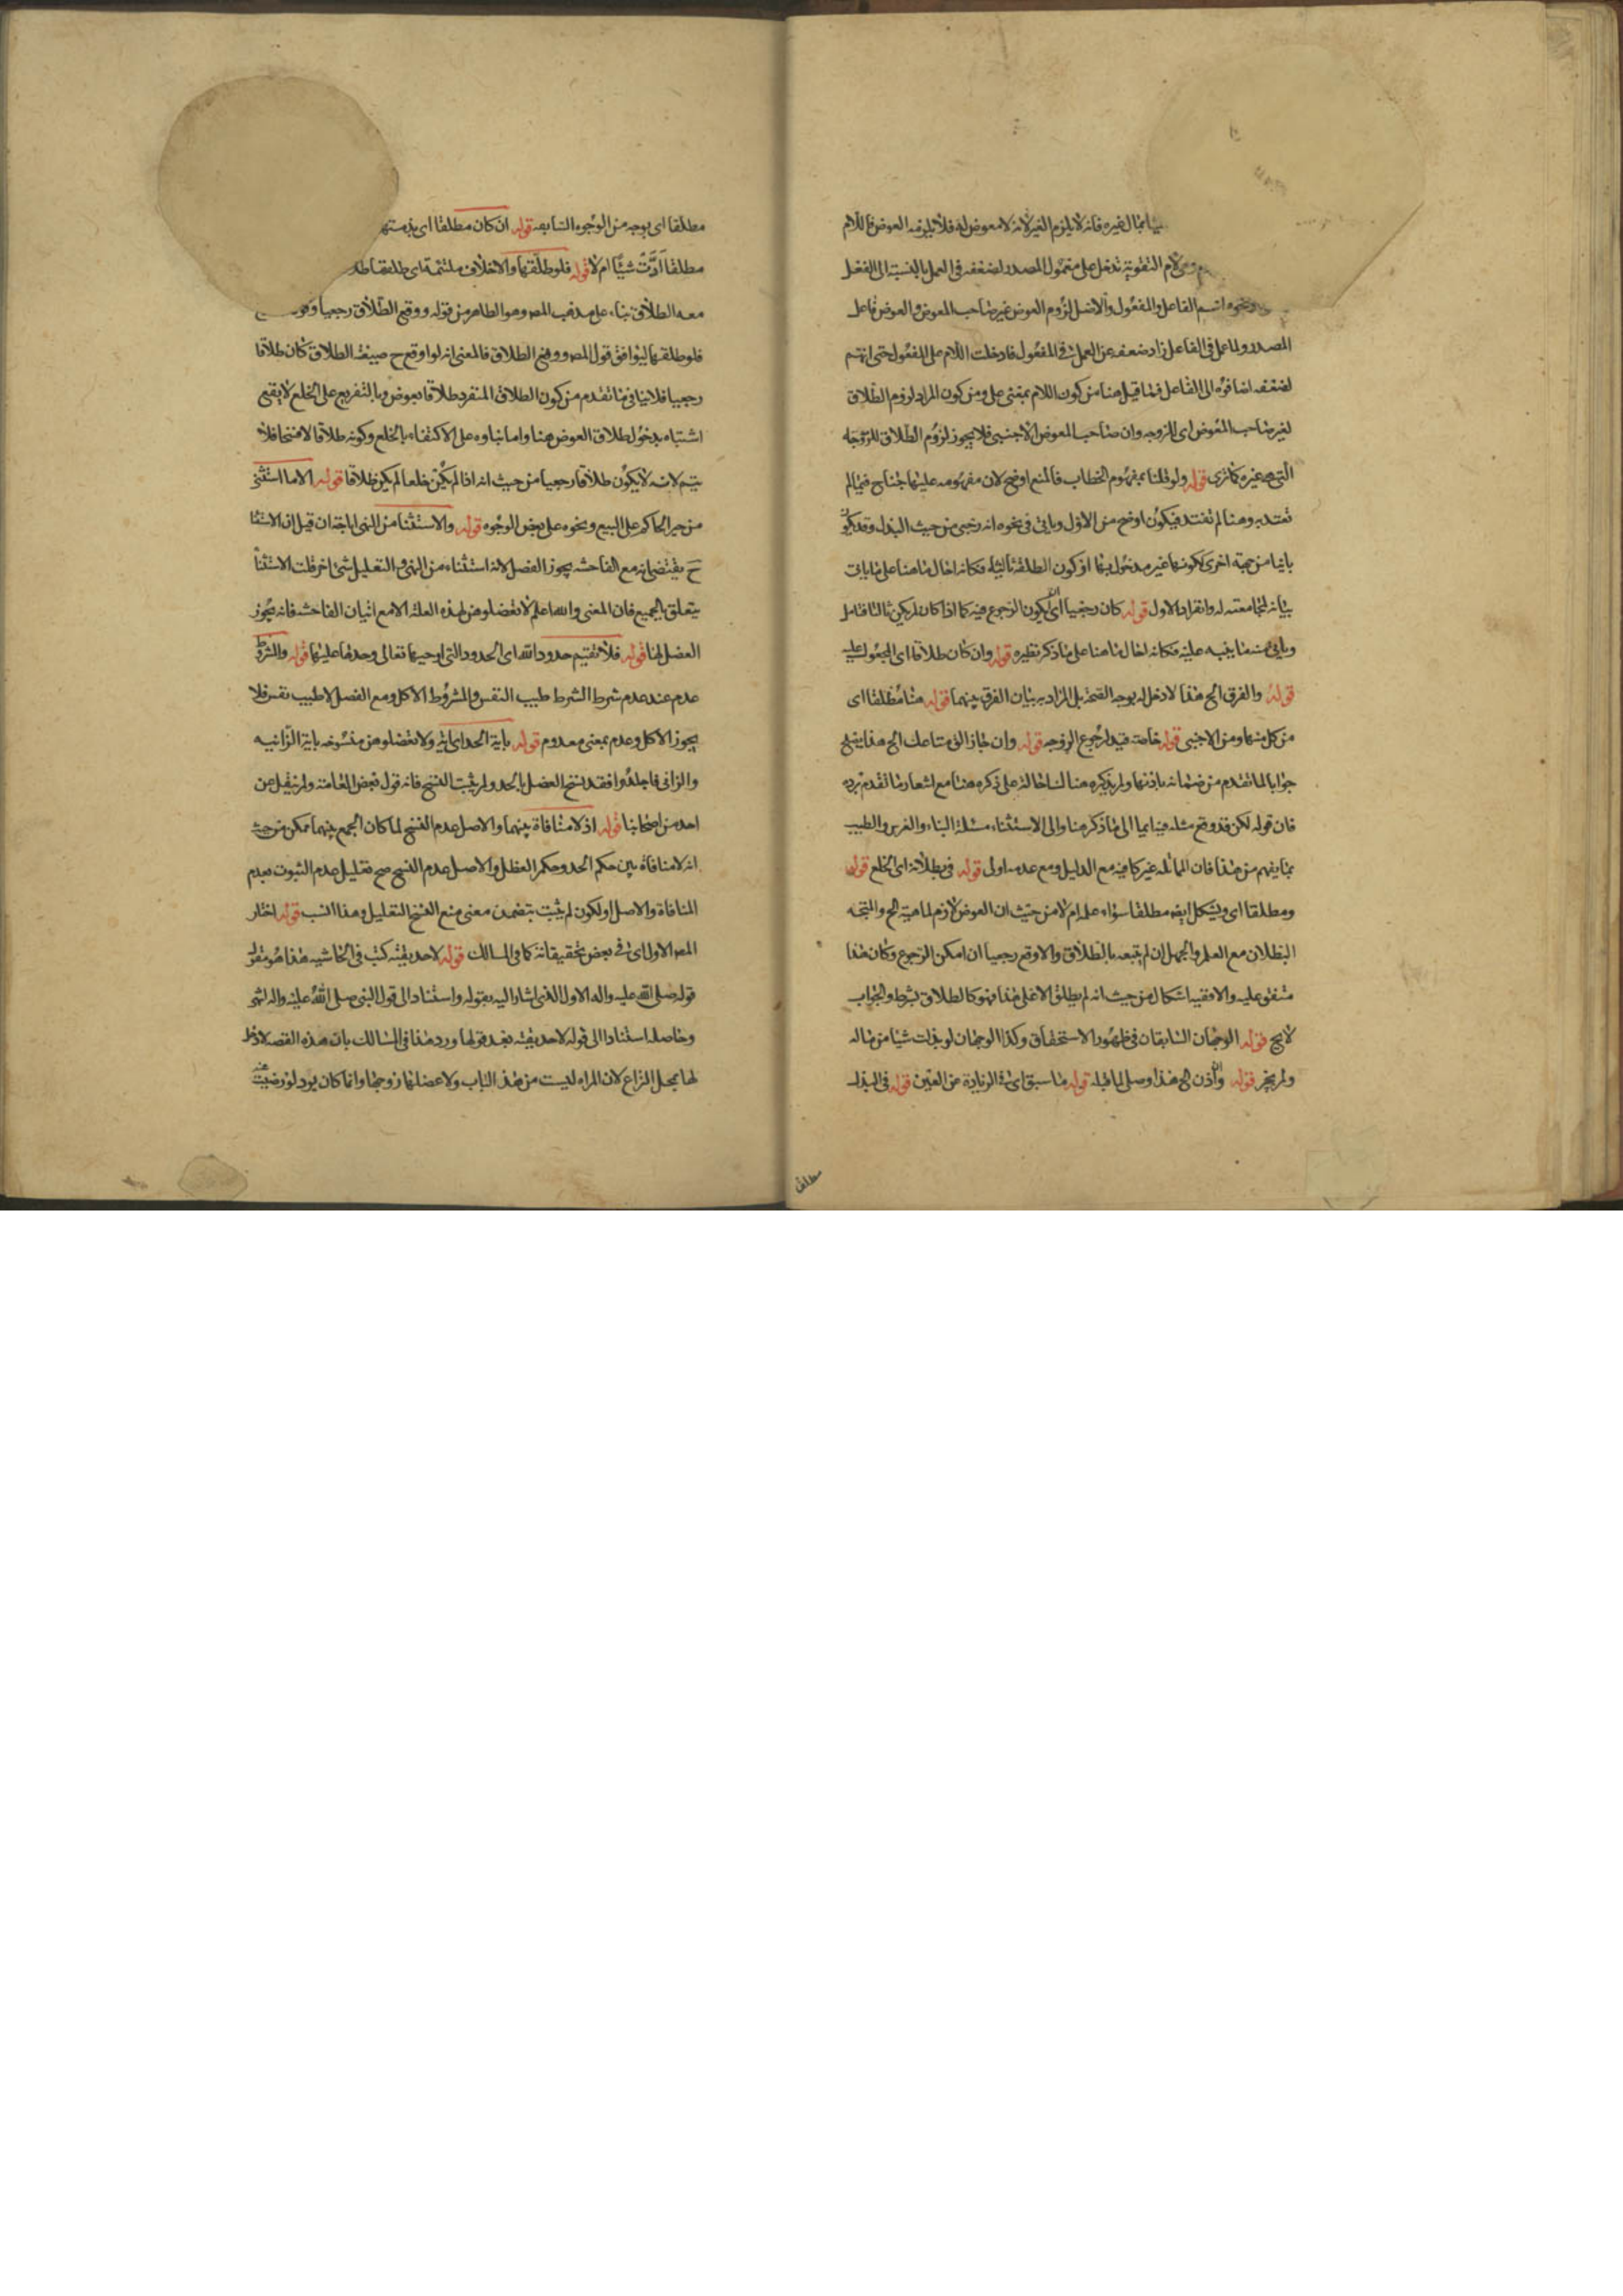 بمال غيره فانه لا يلزم الغير لانه لا معوض له فلا يلزمه العوض فاللام
لام التقوية تدخل على معمول المصدر لضعفه في العمل بالنسبة الى الفعل
ونحوه اسم الفاعل والمفعول والاصل لزوم العوض غير صاحب المعوض والعوض فاعل
المصدر ولما عمل في الفاعل زاد ضعفه عن العمل في المفعول فادخلت اللام على المفعول حتى انهم
لضعفه اضافوه الى الفاعل فما قيل هنا من كون اللام بمعنى على ومن كون المراد لزوم الطلاق
لغير صاحب المعوض اى الزوجه وان صاحب المعوض الاجنبى فلا يجوز لزوم الطلاق للزوجه
التى هى غيره كما ترى قوله ولو قلنا بمفهوم الخطاب فالمنع اوضح لان مفهومه عليهما جناح فيما لم
تفتد به وهنا لم تفتد فيكون اوضح من الاول وياتى فى نحوه انه رجعى من حيث البذل وقد يكون
باينا من جهة اخرى لكونها غير مدخول بها او كون الطلقة ثالثة فكانه احال ما هنا على ما ياتى
بيانه لمجامعته له وانفراد الاول قوله كان رجعيا اى يكون الرجوع فيه كما اذا كان لم يكن ثالثا فتامل
وياتى منه ما ينبه عليه فكانه احال ما هنا على ما ذكر نظيره قوله وان كان طلاقا اى المجعول عليه
قوله والفرق الخ هذا لا دخل له بوجه الصحة بل المراد به بيان الفرق بينهما قوله هنا مطلقا اى
من كل منهما ومن الاجنبى قوله خاصة قيد لرجوع الزوجه قوله وان جاز الق متاعك الخ هذا يصلح
جوابا لما تقدم من ضمانه باذنها ولم يذكره هناك احالة على ذكره هنا مع اشعار ما تقدم برده
فان قوله لكن قد وقع مثله فيها ايما الى ما ذكر هنا والى الاستثناء مسئلة البناء والغرس والطبيب
بما يفهم من هذا فان المماثله غير كافيه مع الدليل ومع عدمه اولى قوله فى بطلانه اى الخلع قوله
ومطلقا اى ويشكل ايضا مطلقا سواء علم ام لا من حيث ان العوض لازم لماهية الخ والمتجه
البطلان مع العلم والجهل ان لم يتبعه بالطلاق والا وقع رجعيا ان امكن الرجوع وكان هذا
متفق عليه والا ففيه اشكال من حيث انه لم يطلق الا على هذا فهو كالطلاق بشرط والجواب
لا يخ قوله الوجهان السابقان فى ظهور الاستحقاق وكذا الوجهان لو بذلت شيئا من ماله
ولم يجز قوله والاذن الخ هذا وصل لما قبله قوله ما سبق اى فى الزيادة عن العين قوله فى البذل
مطلقا
مطلقا اى بوجه من الوجوه السابعه قوله ان كان مطلقا اى
مطلقا ادت شيئا ام لا قوله فلو طلقها والاخلاق ملتئمة اى طلقها
معه الطلاق بناء على مذهب المص وهو الظاهر من قوله ووقع الطلاق رجعيا وقوله
فلو طلقها ليوافق قول المص ووقع الطلاق فالمعنى انه لو اوقع ح صيغة الطلاق كان طلاقا
رجعيا فلا ينافى ما تقدم من كون الطلاق المنفرد طلاقا بعوض وبالتفريع على الخلع لا يقع
اشتباه بدخول طلاق العوض هنا واما بناوه على الاكتفاء بالخلع وكونه طلاقا لا فسخا فلا
يتم لانه لا يكون طلاقا رجعيا من حيث انه اذا لم يكن خلعا لم يكن طلاقا قوله الا ما استثنى
من جبر الحاكم على البيع ونحوه على بعض الوجوه قوله والاستثنا من النهى اباحة ان قيل ان الاستثنا
ح يقتضى انه مع الفاحشه يجوز العضل لانه استثناء من النهى والتعليل شئ اخر قلت الاستثنا
يتعلق بالجميع فان المعنى والله اعلم لا تعضلوهن لهذه العلة الا مع اتيان الفاحشه فانه يجوز
العضل لها قوله فلا تقيم حدود الله اى الحدود التى اوجبها تعالى وحدها عليهما قوله والمشروط
عدم عند عدم شرط الشرط طيب النفس والمشروط الاكل ومع العضل لا طيب نفس فلا
يجوز الاكل وعدم بمعنى معدوم قوله باية الحد اى اية ولا تعضلوهن منسوخه باية الزانيه
والزانى فاجلدوا فقد نسخ العضل بالحد ولم يثبت النسخ فانه قول بعض العامة ولم ينقل عن
احد من اصحابنا قوله اذ لا منافاة بينهما والاصل عدم النسخ لما كان الجمع بينهما ممكن من حيث
انه لا منافاة بين حكم الحد وحكم العضل والاصل عدم النسخ صح تعليل عدم الثبوت بعدم
المنافاة والاصل او لكون لم يثبت بتضمن معنى منع النسخ التعليل وهذا انسب قوله اختار
المص الاول اى فى بعض تحقيقاته كما فى المسالك قوله لا حديقته كتب فى الحاشيه هذا هو مقول
قوله صلى الله عليه واله الاول الذى اشار اليه بقوله واستنادا الى قول النبى صلى الله عليه واله انتهى
وحاصله استنادا الى قوله لا حديقته بعد قولها ورد هذا فى المسالك بان هذه القصه لا دخل
لها بمحل النزاع لان المراه ليست من هذا الباب ولا عضلها زوجها وانما كان يود لو رضيت عنه